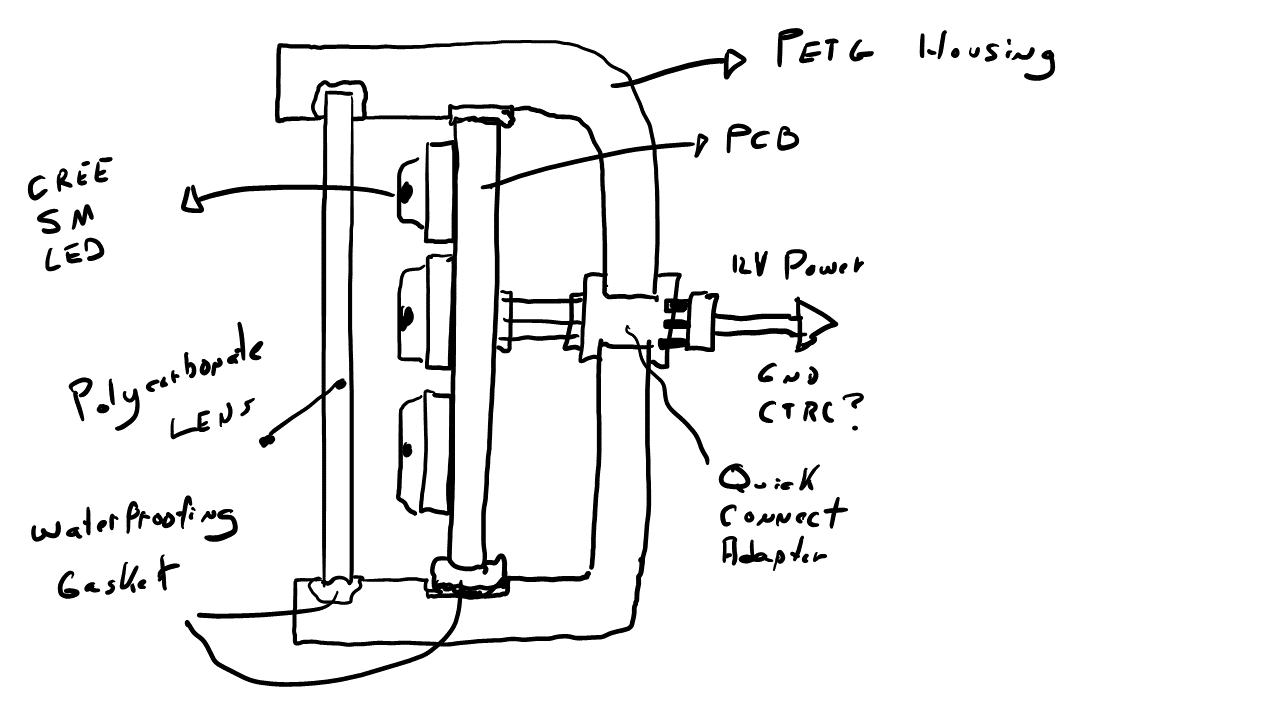 PETG Housing
PCB
CREE
SM
LED
12V Power
Polycarbonate
LENS
GND
CTRL?
Quick
Connect
Adapter
Waterproofing
Gasket